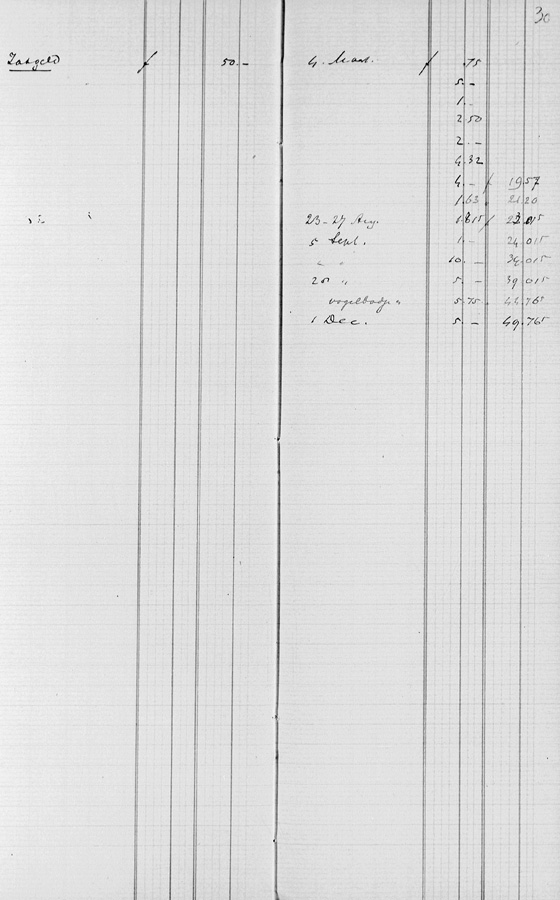 30
Zakgeld f 50.—
4. Maart. f .75
5. —
1. —
2.50
2. —
4.32
4. — f 19.57
1.63 21.20
23-27 Aug. 1.815 23.015
5 Sept. 1. — 24.015
" " 10. — 34.015
25 " 5. — 39.015
vogelboekje 5.75 44.765
1 Dec. 5. — 49.765